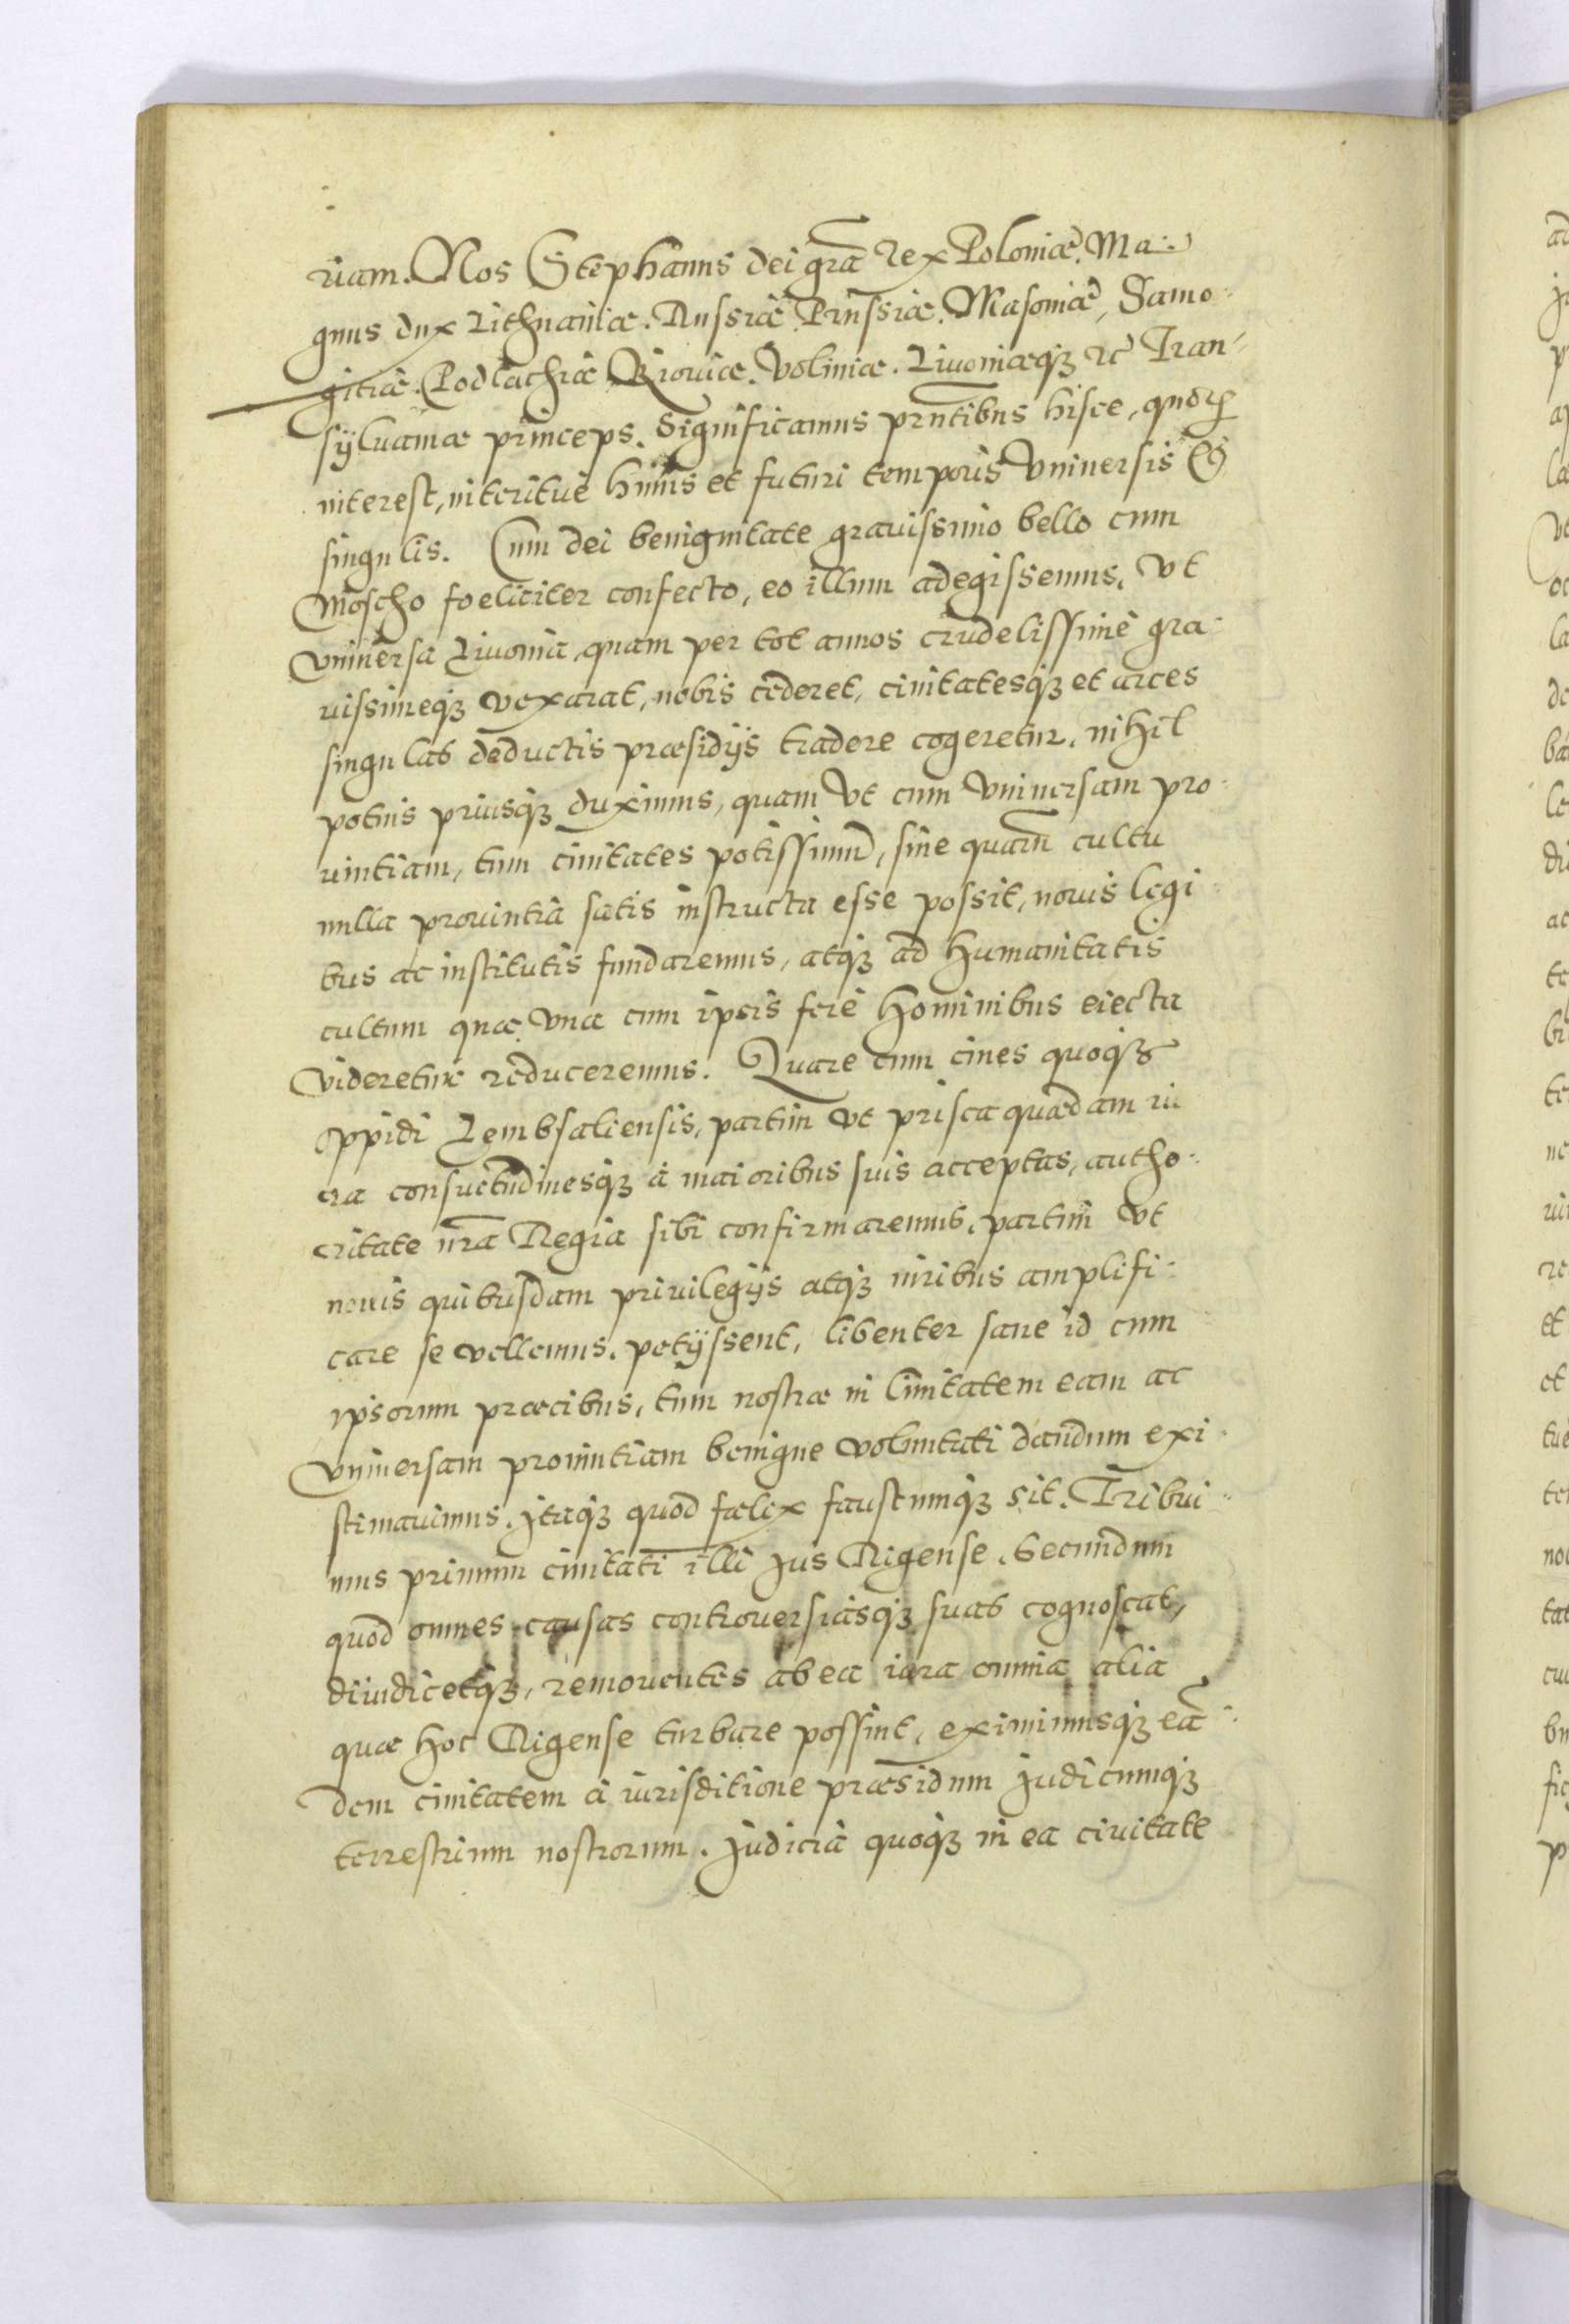 riam. Nos Stephanus dei gra͞ Rex Poloniæ, Ma-
gnus dux Lithuaniæ. Russiæ. Prussiæ. Masoniæ, Samo-
gitiæ. Podlachiæ Kiouiæ. Voliniæ. Liuoniæq3 ꝛc Tran-
syluaniæ princeps. Significamus prn͞tibus hisce, quorꝝ
interest, interitue huius et futuri temporis Vniuersis et
singulis. Cum dei benignitate grauissimo bello cum
Moscho foeliciter confecto, eo illum adegissemus, Vt
vniuersa Liuonia, quam per tot annos crudelissimè gra-
uissimeq3 vexarat, nobis cederet, ciuitatesq3 et arces
singulas deductis præsidijs tradere cogeretur, nihil
potius priusq3 duximus, quam Vt cum Vniuersam pro-
uintiam, tum ciuitates potissimu͞, sine quaru͞ cultu
nulla prouintia satis instructa esse possit, nouis legi-
bus ac institutis fundaremus, atq3 ad humanitatis
cultum quæ Vna cum ipsis ferè hominibus eiecta
videretur reduceremus. Quare cum ciues quoq3
oppidi Lembsaliensis, partim vt prisca quædam iu
ra consuetudinesq3 à maioribus suis acceptas, autho-
ritate nr͞a Regia sibi confirmaremus, partim Vt
nouis quibusdam priuilegijs atq3 iuribus amplifi-
care se vellemus, petijssent, libenter sane id cum
ipsorum præcibus, tum nostræ in ciuitatem eam ac
vniuersam prouintiam benigne voluntati dandum exi-
stimauimus. Itaq3 quod fælix faustumq3 sit. Tribui-
mus primum ciuitati illi Jus Rigense. Secundum
quod omnes causas controuersiasq3 suas cognoscat,
diiudicetq3, remouentes ab ea iura omnia alia
quæ hoc Rigense turbare possint, eximimusq3 ea͞-
dem ciuitatem à iurisditione præsidum Judicumq3
terrestrium nostrorum. Judicia quoq3 in ea ciuitate